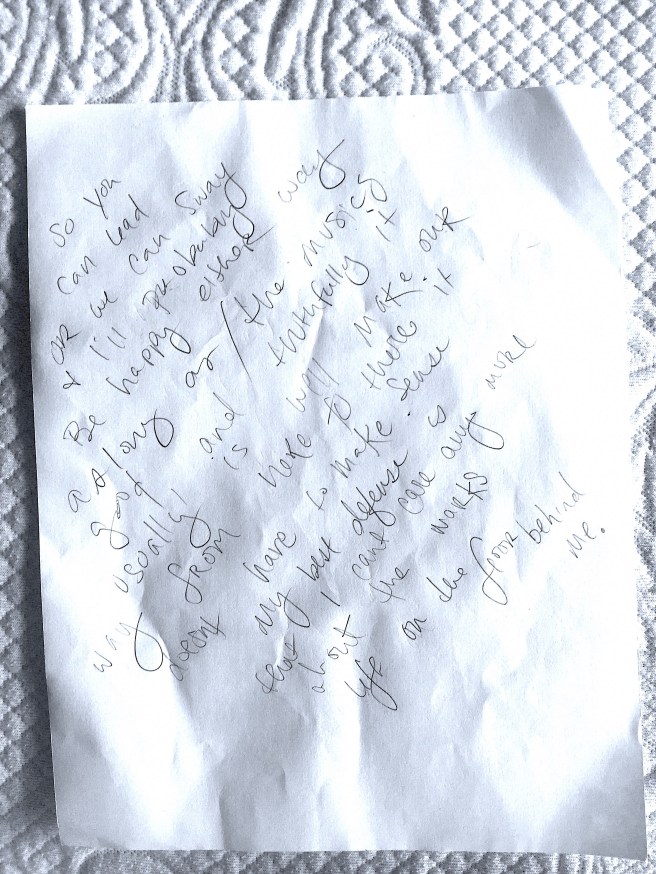 So you
can lead
or we can sway
& I'll probably
Be happy either way
as long as / the music's
good and truthfully it
usually is we'll make our
way from here to there it
doesnt have to make sense
my best defense is
that I cant care any more
about the marks
left on the floor behind
me.